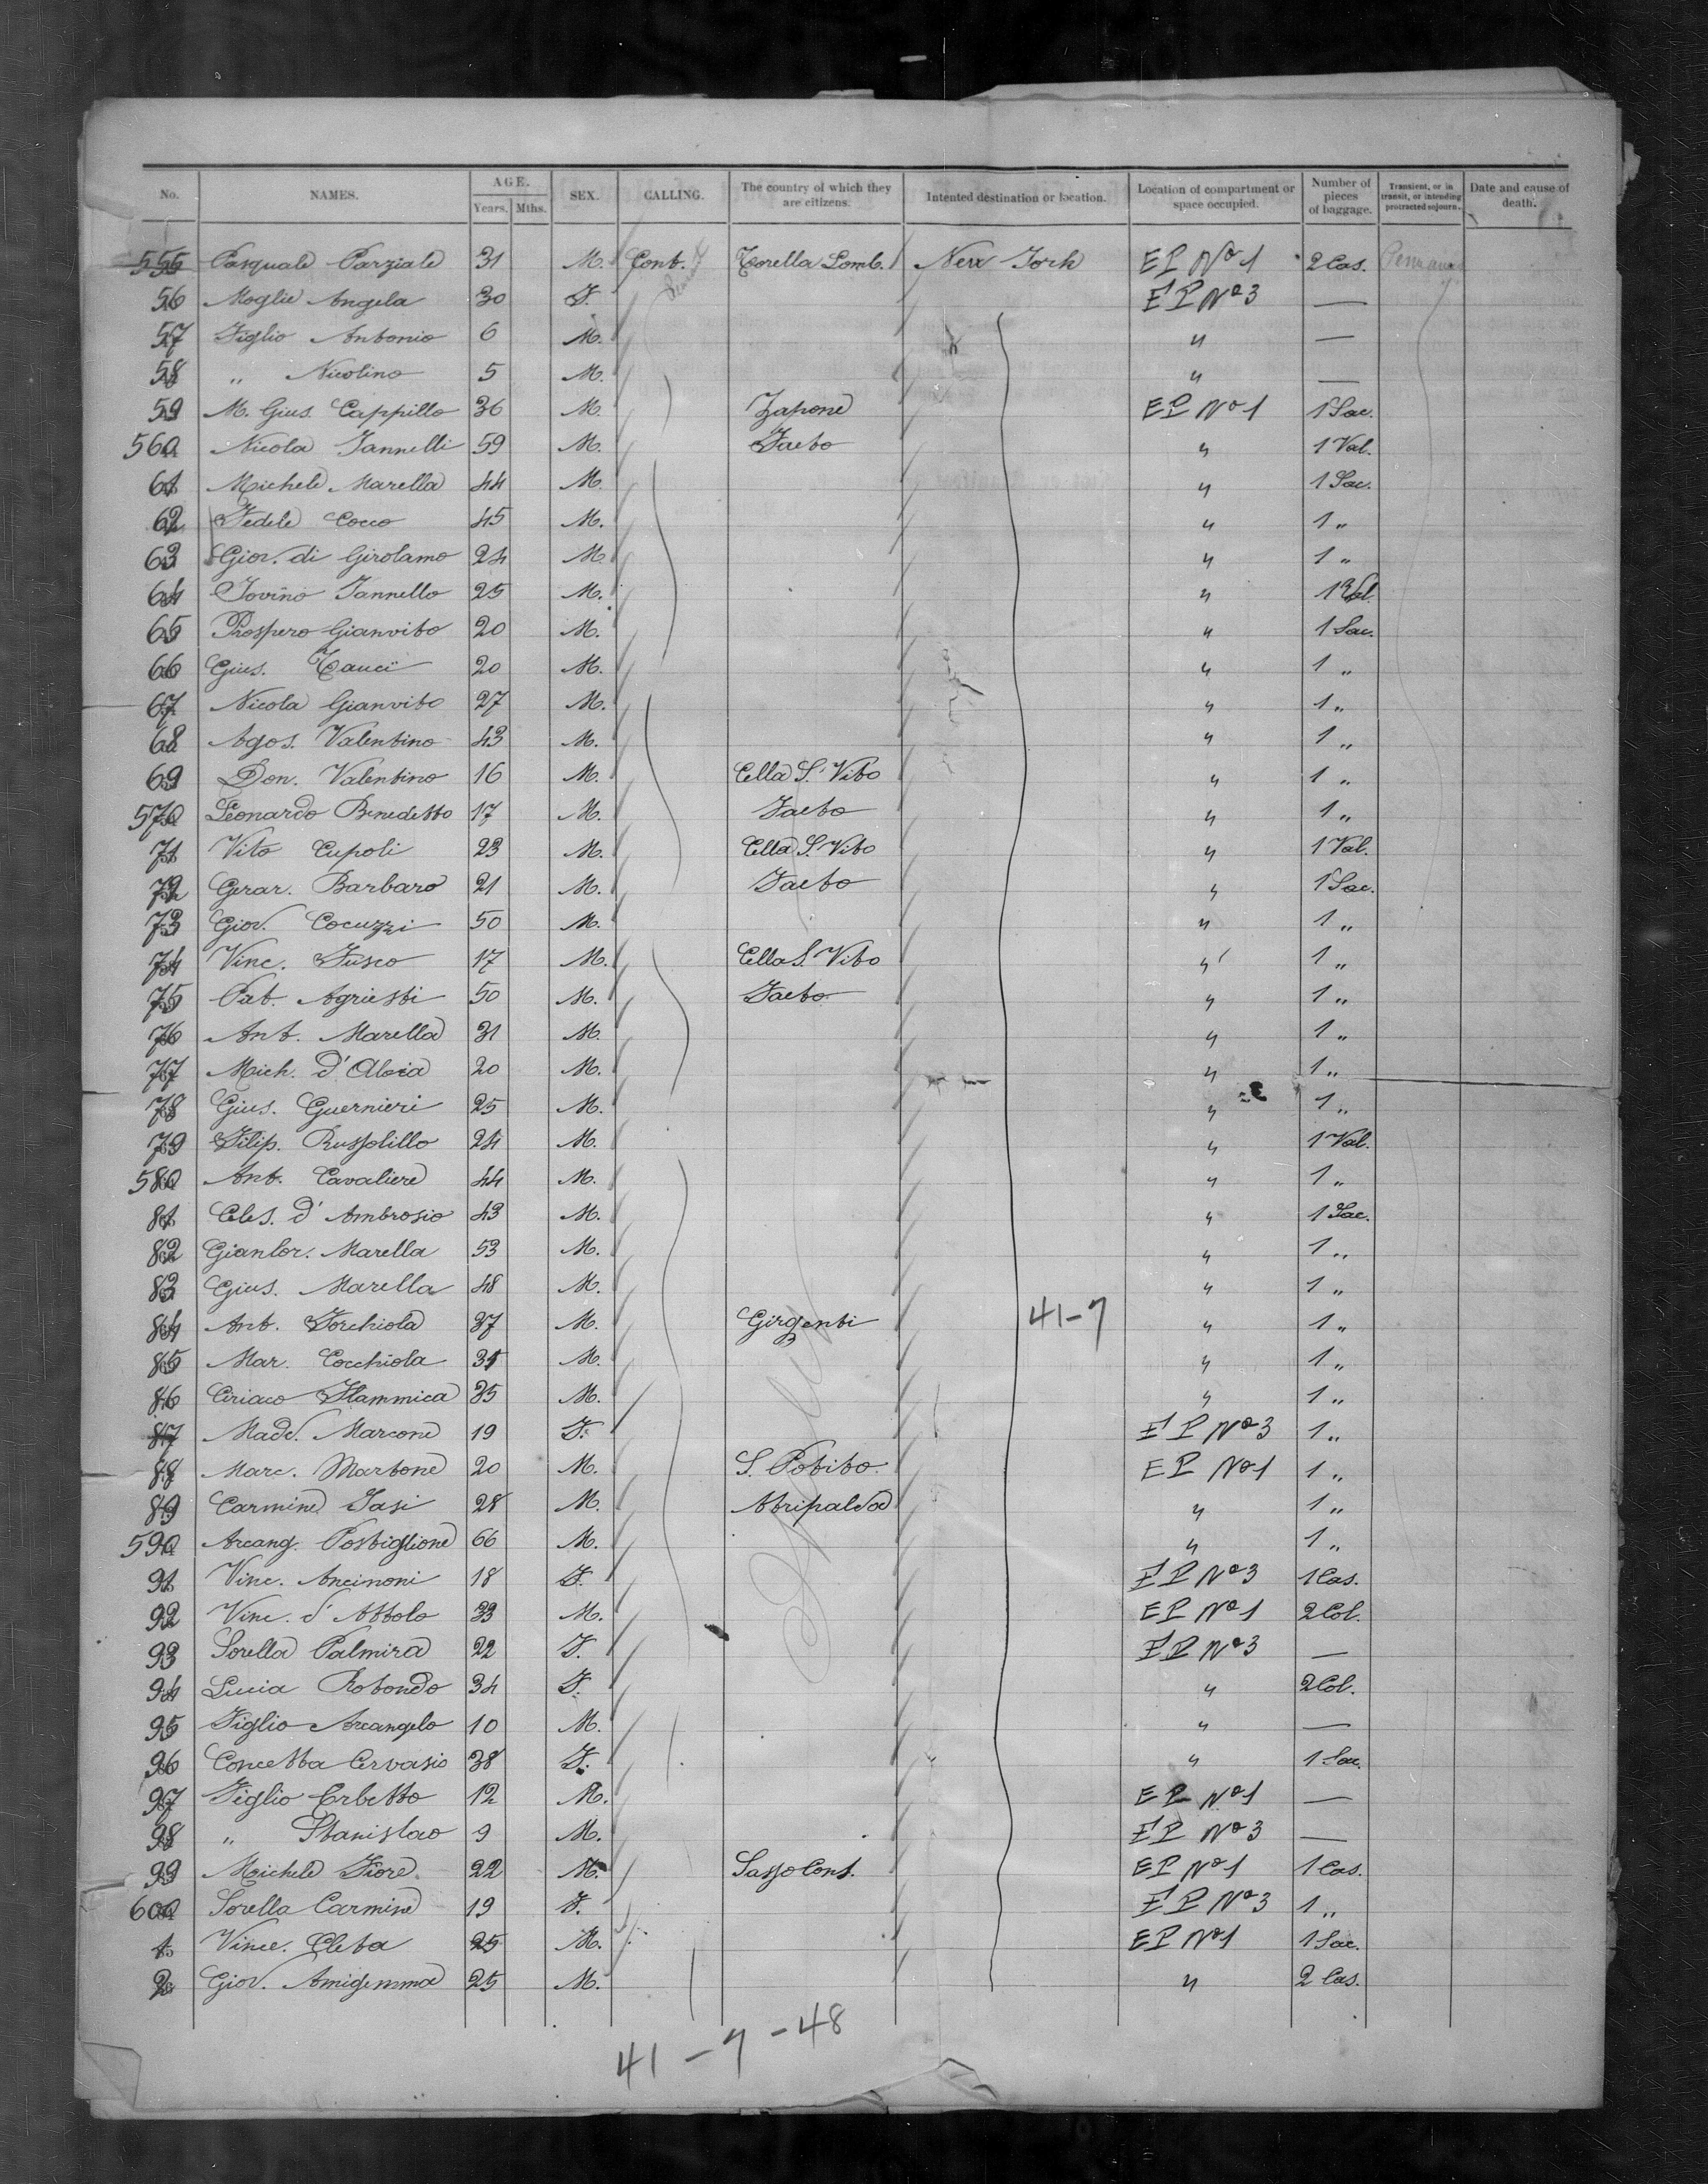 No. NAMES. AGE. Years. Mths. SEX. CALLING. The country of which they are citizens. Intented destination or location. Location of compartment or space occupied. Number of pieces of baggage. Transient, or in transit, or intending protracted sojourn. Date and cause of death.
555 Pasquale Parziale 31 M. Cont. Torella Lomb. New York EP No 1 2 Cas.
56 Moglie Angela 30 F. EP No 3 —
57 Figlio Antonio 6 M. " —
58 " Nicolino 5 M. " —
59 M. Gius. Cappillo 36 M. Zapone EP No 1 1 Sac.
560 Nicola Iannelli 59 M. Faeto " 1 Val.
61 Michele Marella 44 M. " 1 Sac.
62 Fedele Cocco 45 M. " 1 "
63 Giov. di Girolamo 24 M. " 1 "
64 Iovino Iannello 25 M. " 1 Val.
65 Prospero Gianvito 20 M. " 1 Sac.
66 Gius. Tauci 20 M. " 1 "
67 Nicola Gianvito 27 M. " 1 "
68 Agos. Valentino 43 M. " 1 "
69 Don. Valentino 16 M. Cella S. Vito " 1 "
570 Leonardo Benedetto 17 M. Faeto " 1 "
71 Vito Cupoli 23 M. Cella S. Vito " 1 Val.
72 Gerar. Barbaro 21 M. Faeto " 1 Sac.
73 Giov. Cocuzzi 50 M. " 1 "
74 Vinc. Fusco 17 M. Cella S. Vito " 1 "
75 Pat. Agriesti 50 M. Faeto " 1 "
76 Ant. Marella 31 M. " 1 "
77 Mich. d'Aloia 20 M. " 1 "
78 Gius. Guernieri 25 M. " 1 "
79 Filip. Russolillo 24 M. " 1 Val.
580 Ant. Cavaliere 44 M. " 1 "
81 Celes. d'Ambrosio 43 M. " 1 Sac.
82 Gianlor. Marella 53 M. " 1 "
83 Gius. Marella 48 M. " 1 "
84 Ant. Torchiola 37 M. Girgenti 41-7 " 1 "
85 Mar. Cocchiola 35 M. " 1 "
86 Ciriaco Flammica 35 M. " 1 "
87 Madd. Marcone 19 F. EP No 3 1 "
88 Marc. Martone 20 M. S. Potito EP No 1 1 "
89 Carmine Iasi 28 M. Atripalda " 1 "
590 Arcang. Postiglione 66 M. " 1 "
91 Vinc. Ancinoni 18 F. EP No 3 1 Cas.
92 Vinc. d'Attolo 33 M. EP No 1 2 Col.
93 Sorella Palmira 22 F. EP No 3 —
94 Lucia Rotondo 34 F. " 2 Col.
95 Figlio Arcangelo 10 M. " —
96 Concetta Cervasio 38 F. " 1 Sac.
97 Figlio Erbetto 12 M. EP No 1 —
98 " Stanislao 9 M. EP No 3 —
99 Michele Fiore 22 M. Sasso Cont. EP No 1 1 Cas.
600 Sorella Carmine 19 F. EP No 3 1 "
1 Vince. Cleta 25 M. EP No 1 1 Sac.
2 Giov. Amigemma 25 M. " 2 Cas.
41-7-48